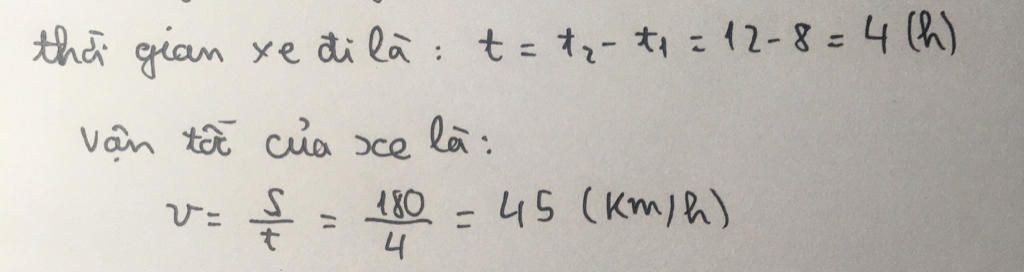 thời gian xe đi là : t = t₂ - t₁ = 12 - 8 = 4 (h)
Vận tốc của xe là :
v = S/t = 180/4 = 45 (Km/h)